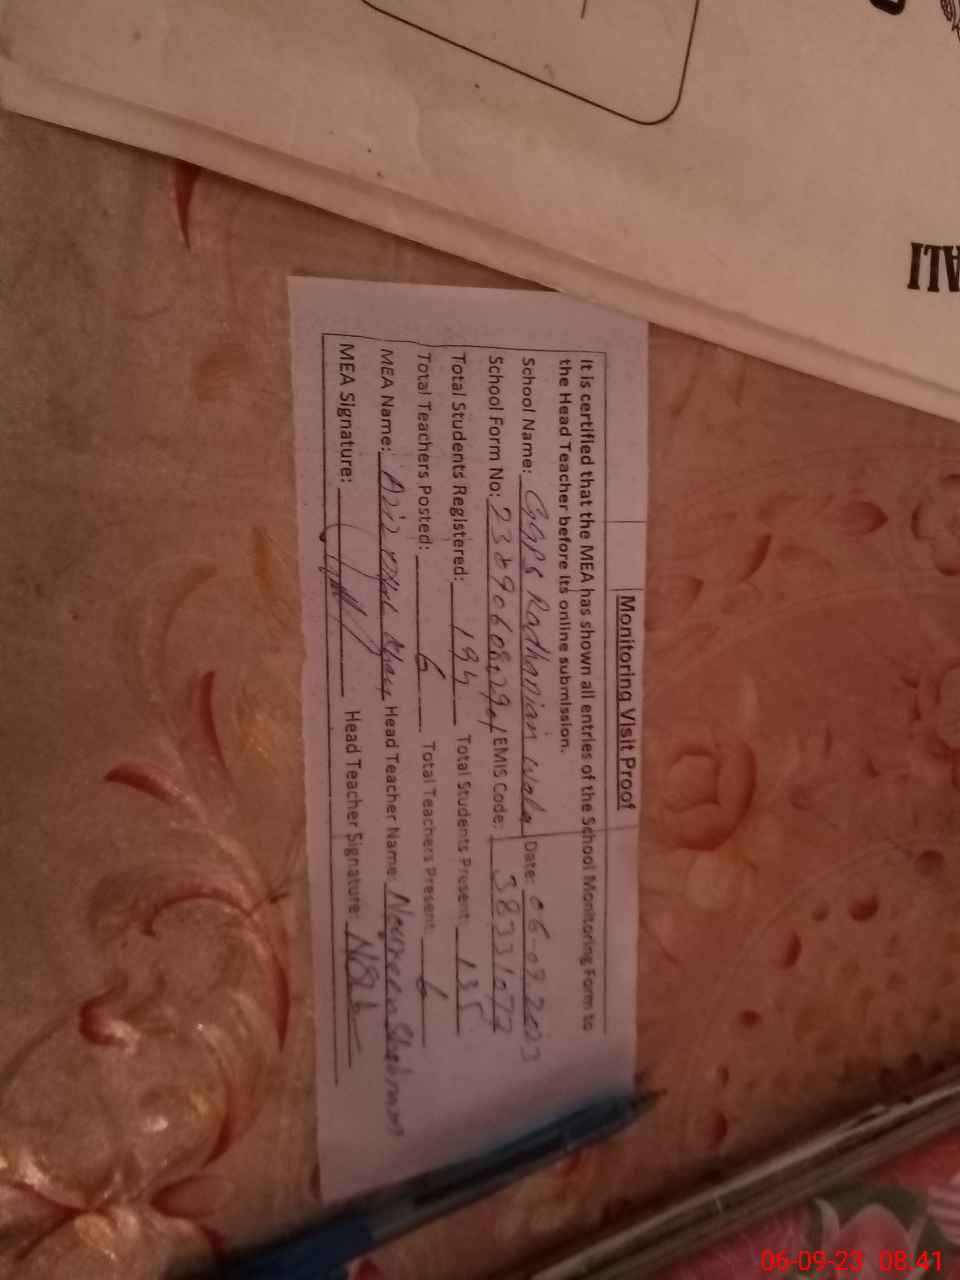 Monitoring Visit Proof
It is certified that the MEA has shown all entries of the School Monitoring Form to
the Head Teacher before its online submission.
School Name: GGPS Radhanian wala Date: 06-09.2023
School Form No: EMIS Code: 38331072
Total Students Registered: 194 Total Students Present: 135
Total Teachers Posted: 6 Total Teachers Present: 6
MEA Name: Head Teacher Name: Noureen Shabnam
MEA Signature: Head Teacher Signature:
ALI
06-09-23 08:41